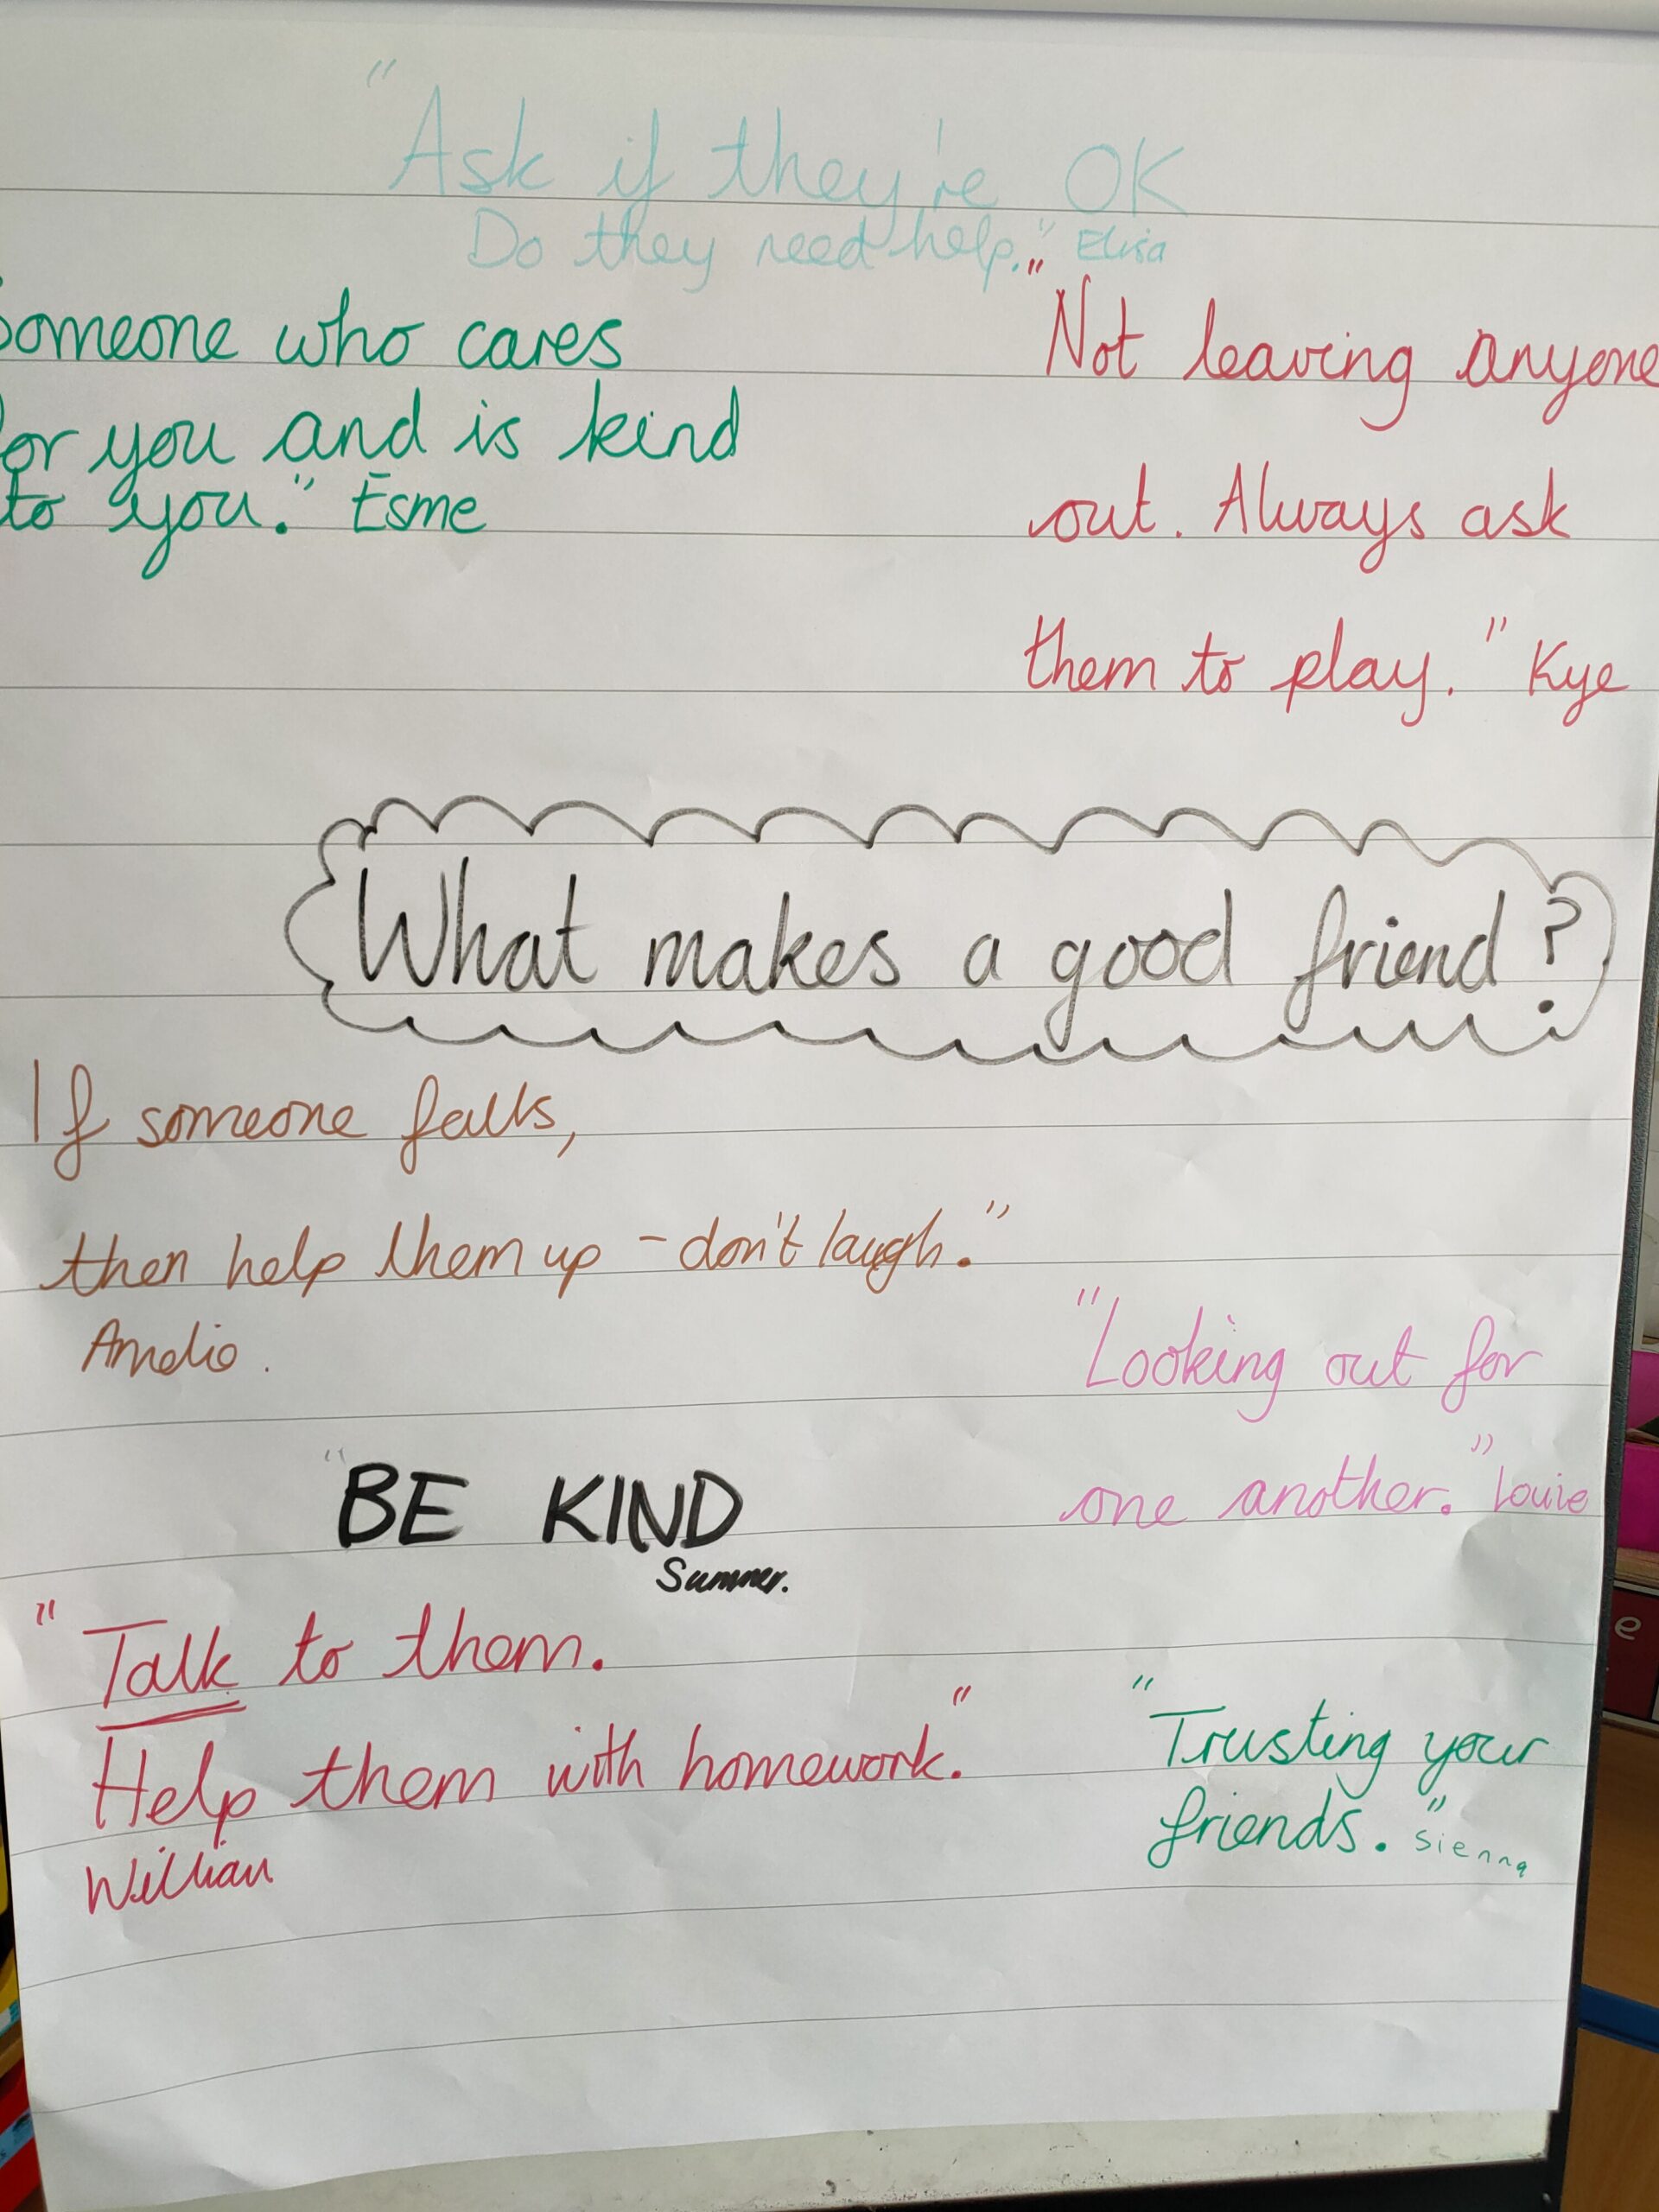 "Ask if they're OK
Do they need help." Elisa
Someone who cares
for you and is kind
to you." Esme
"Not leaving anyone
out. Always ask
them to play." Kye
What makes a good friend?
If someone falls,
then help them up - don't laugh."
Amelia.
"Looking out for
one another." Louie
"BE KIND
Summer.
"Talk to them.
Help them with homework."
William
"Trusting your
friends." Sienna